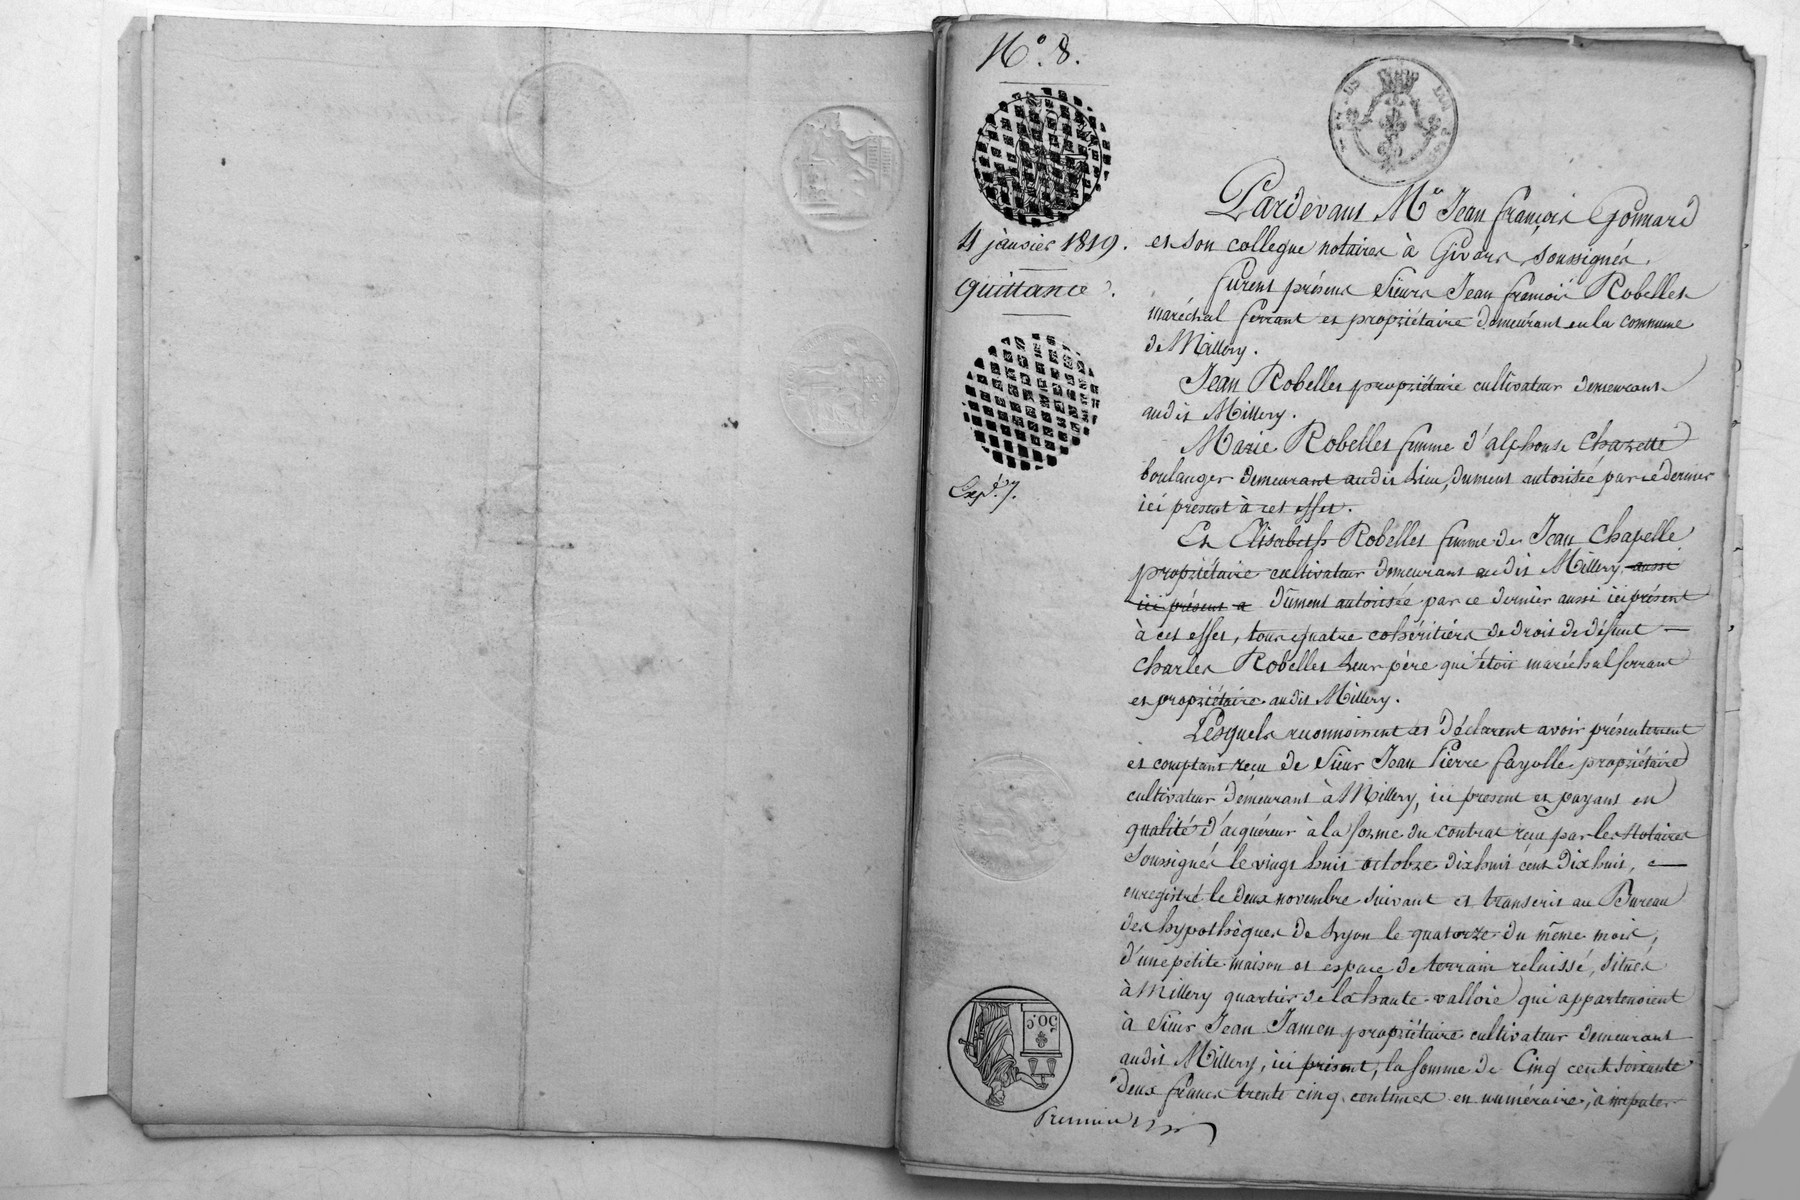 N.° 8.
4 janvier 1819.
Quittance.
Exp.é 7.
Pardevant M.e Jean françois Gonnard
et son collegue notaires à Givors, soussignés.
furent présens sieurs Jean françois Robelles
maréchal ferrant et propriétaire demeurant en la commune
de Millery.
Jean Robelles propriétaire cultivateur demeurant
audit Millery.
Marie Robelles femme d'alphonse Chazette
boulanger demeurant audit lieu, dument autorisée par ce dernier
ici présent à cet effet.
Et Elisabeth Robelles femme de Jean Chapelle
propriétaire cultivateur demeurant audit Millery, aussi
ici présent a dûment autorisée par ce dernier aussi ici présent
à cet effet, tous quatre cohéritiers de droit de défunt
Charles Robelles leur père qui étoit maréchal ferrant
et propriétaire audit Millery.
Lesquels reconnoissent et déclarent avoir présentement
et comptant reçu de sieur Jean Pierre fayolle propriétaire
cultivateur demeurant à Millery, ici present et payant en
qualité d'acquéreur à la forme du contrat reçu par les Notaires
soussignés le vingt huit octobre dix huit cent dix huit,
enregistré le deux novembre suivant et transcrit au Bureau
des hypothèques de Lyon le quatorze du même mois,
d'une petite maison et espace de terrain relaissé, situés
à Millery quartier de la haute valloie qui appartenoient
à sieur Jean Jamen propriétaire cultivateur demeurant
audit Millery, ici présent, la somme de Cinq cent soixante
deux francs trente cinq centimes en numéraire, à imputer
50.c
Premiere